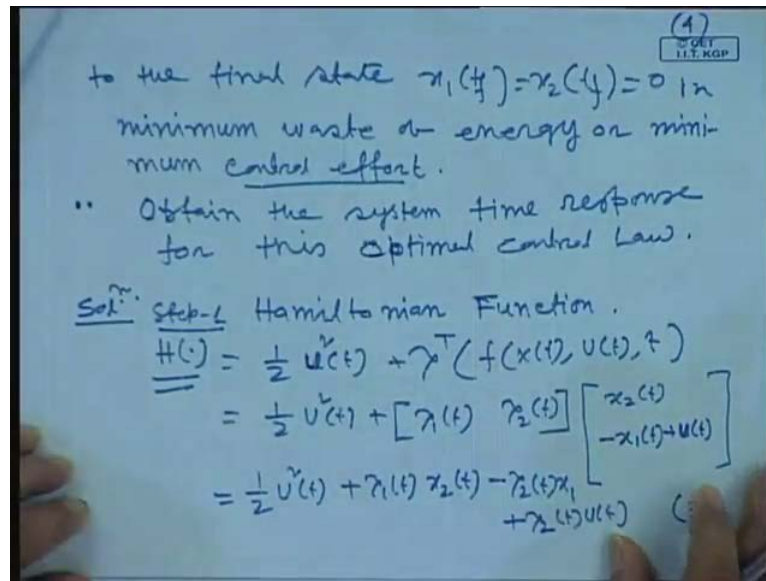 (4)
© CET
I.I.T. KGP
to the final state x₁(t_f) = x₂(t_f) = 0 in
minimum waste of energy or mini-
mum control effort.
.. Obtain the system time response
for this optimal control Law.
Solⁿ. Step-1 Hamiltonian Function.
H(·) = 1/2 u²(t) + λᵀ(f(x(t), u(t), t)
= 1/2 u²(t) + [λ₁(t) λ₂(t)] [x₂(t)
-x₁(t)+u(t)]
= 1/2 u²(t) + λ₁(t) x₂(t) - λ₂(t)x₁
+ λ₂(t)u(t) (